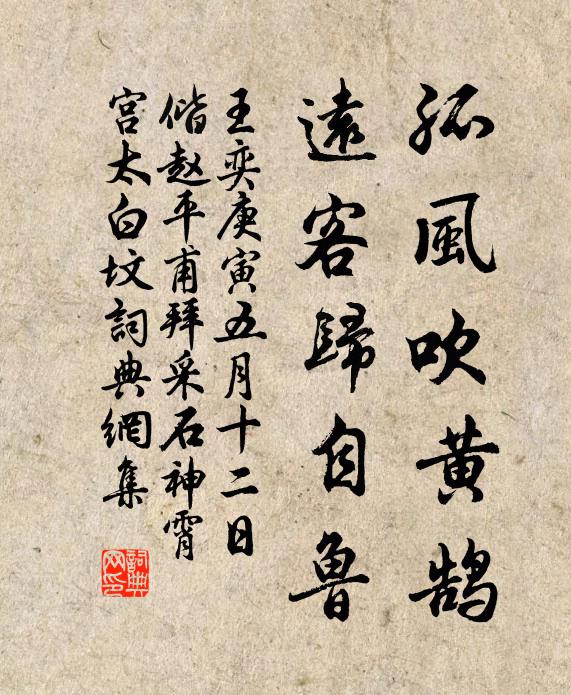 孤風吹黄鹄
遠客歸自魯
王奕庚寅五月十二日
偕赵平甫拜采石神霄
宫太白坟詞典網集
詞典网印